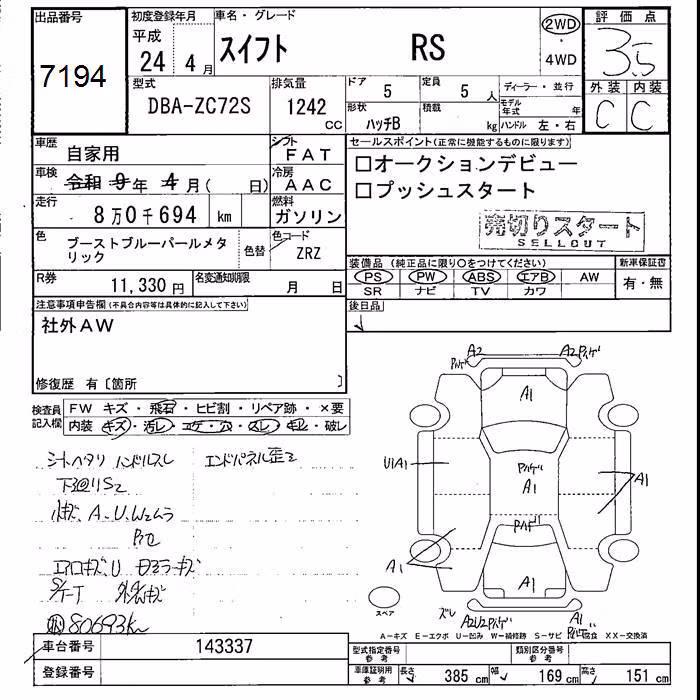 出品番号
7194
初度登録年月
平成
24年 4月
車名・グレード
スイフト RS
2WD
・
4WD
評価点
3.5
外装 内装
C C
型式
DBA-ZC72S
排気量
1242
CC
ドア 5
定員 5 人
形状 ハッチB
積載 kg
ディーラー・並行
モデル年式 年
ハンドル 左・右
車歴 自家用
シフト FAT
車検 令和 9年 4月( 日)
冷房 AAC
走行 8万0千694 km
燃料 ガソリン
色 ブーストブルーパールメタリック
色替
色コード ZRZ
R券 11,330円
名変通知期限 月 日
セールスポイント(正常に機能するものに限ります)
□オークションデビュー
□プッシュスタート
売切りスタート
SELLOUT
装備品(純正品に限り○をつけてください)
PS PW ABS エアB AW
SR ナビ TV カワ
新車保証書
有・無
後日品
注意事項申告欄(不具合内容等は具体的に記入して下さい)
社外AW
修復歴 有〔箇所 〕
検査員記入欄
FW キズ・飛石・ヒビ割・リペア跡・×要
内装 キズ・汚レ・コゲ・穴・スレ・キレ・破レ
シートヘタリ ハンドルスレ エンドパネル歪
下廻りS2
小キズ A、U、W2ムラ
エアロキズ、U
80693km
A2
A2
A1
U1A1
A1
A1
A1
A1
ズレ
A1
スペア
A－キズ E－エクボ U－凹み W－補修跡 S－サビ XX－交換済
車台番号 143337
登録番号
型式指定番号 参考
類別区分番号 参考
車庫証明用 参考
長さ 385 cm 幅 169 cm 高さ 151 cm